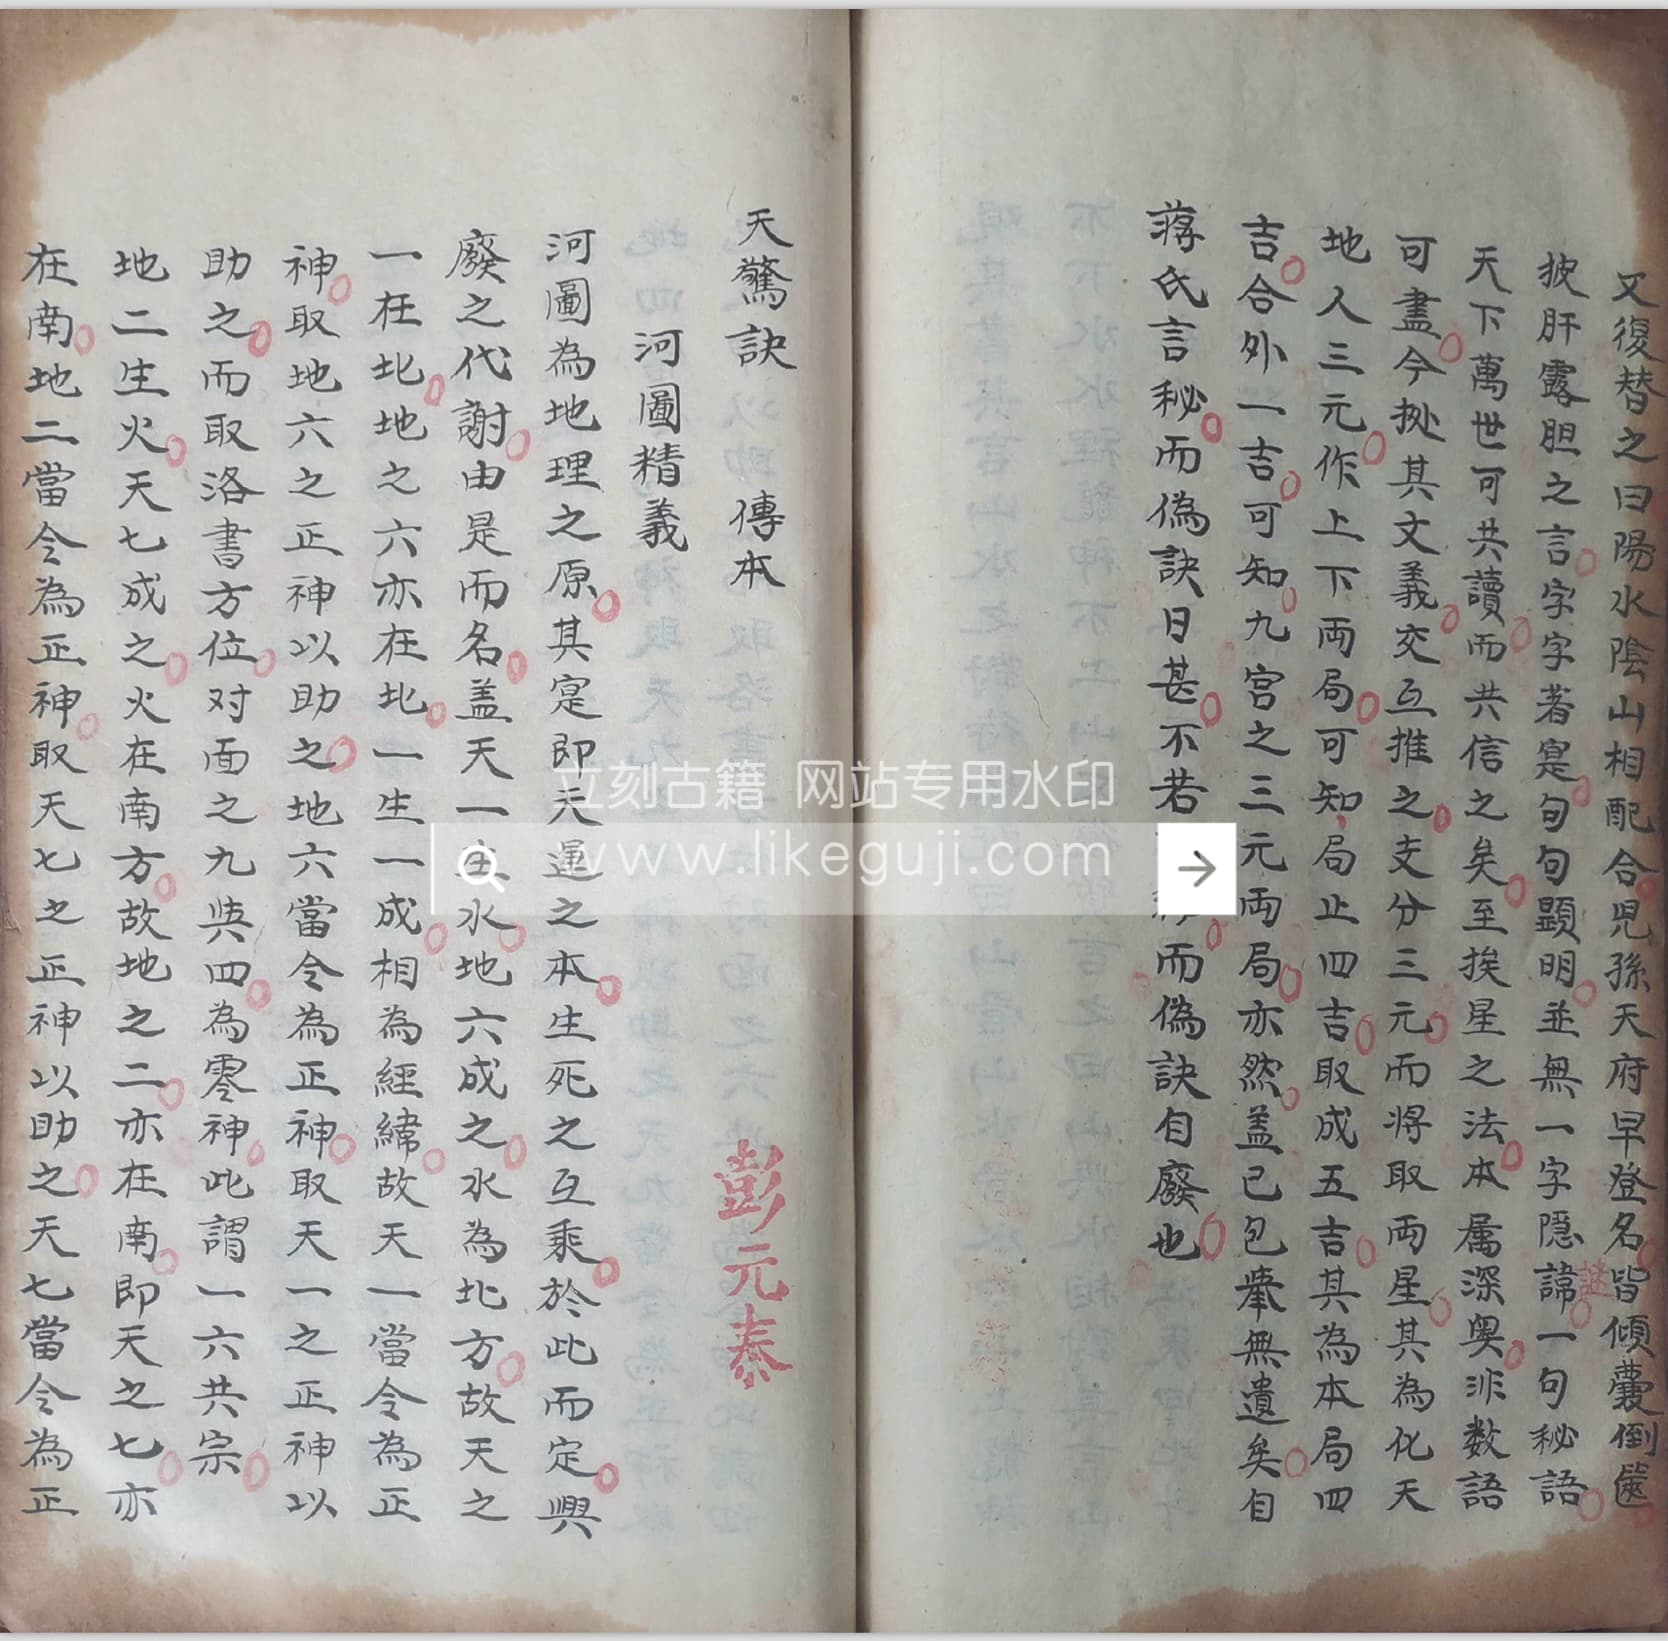 又復替之曰陽水陰山相配合児孫天府早登名皆傾囊倒篋
披肝露胆之言字字著寔句句顯明並無一字隠諱一句秘語
謎
天下萬世可共讀而共信之矣至挨星之法本属深奥非数語
可盡今𢱢其文義交互推之支分三元而将取両星其為化天
地人三元作上下両局可知局止四吉取成五吉其為本局四
吉合外一吉可知九宮之三元両局亦然盖已包舉無遺矣自
蒋氏言秘而偽訣日甚不若
而偽訣自廢也
天驚訣 傳本
彭元泰
河圖精義
河圖為地理之原其寔即天運之本生死之互乘於此而定興
廢之代謝由是而名盖天一生水地六成之水為北方故天之
一在北地之六亦在北一生一成相為經緯故天一當令為正
神取地六之正神以助之地六當令為正神取天一之正神以
助之而取洛書方位对面之九與四為零神此謂一六共宗
地二生火天七成之火在南方故地之二亦在南即天之七亦
在南地二當令為正神取天七之正神以助之天七當令為正
立刻古籍 网站专用水印
www.likeguji.com